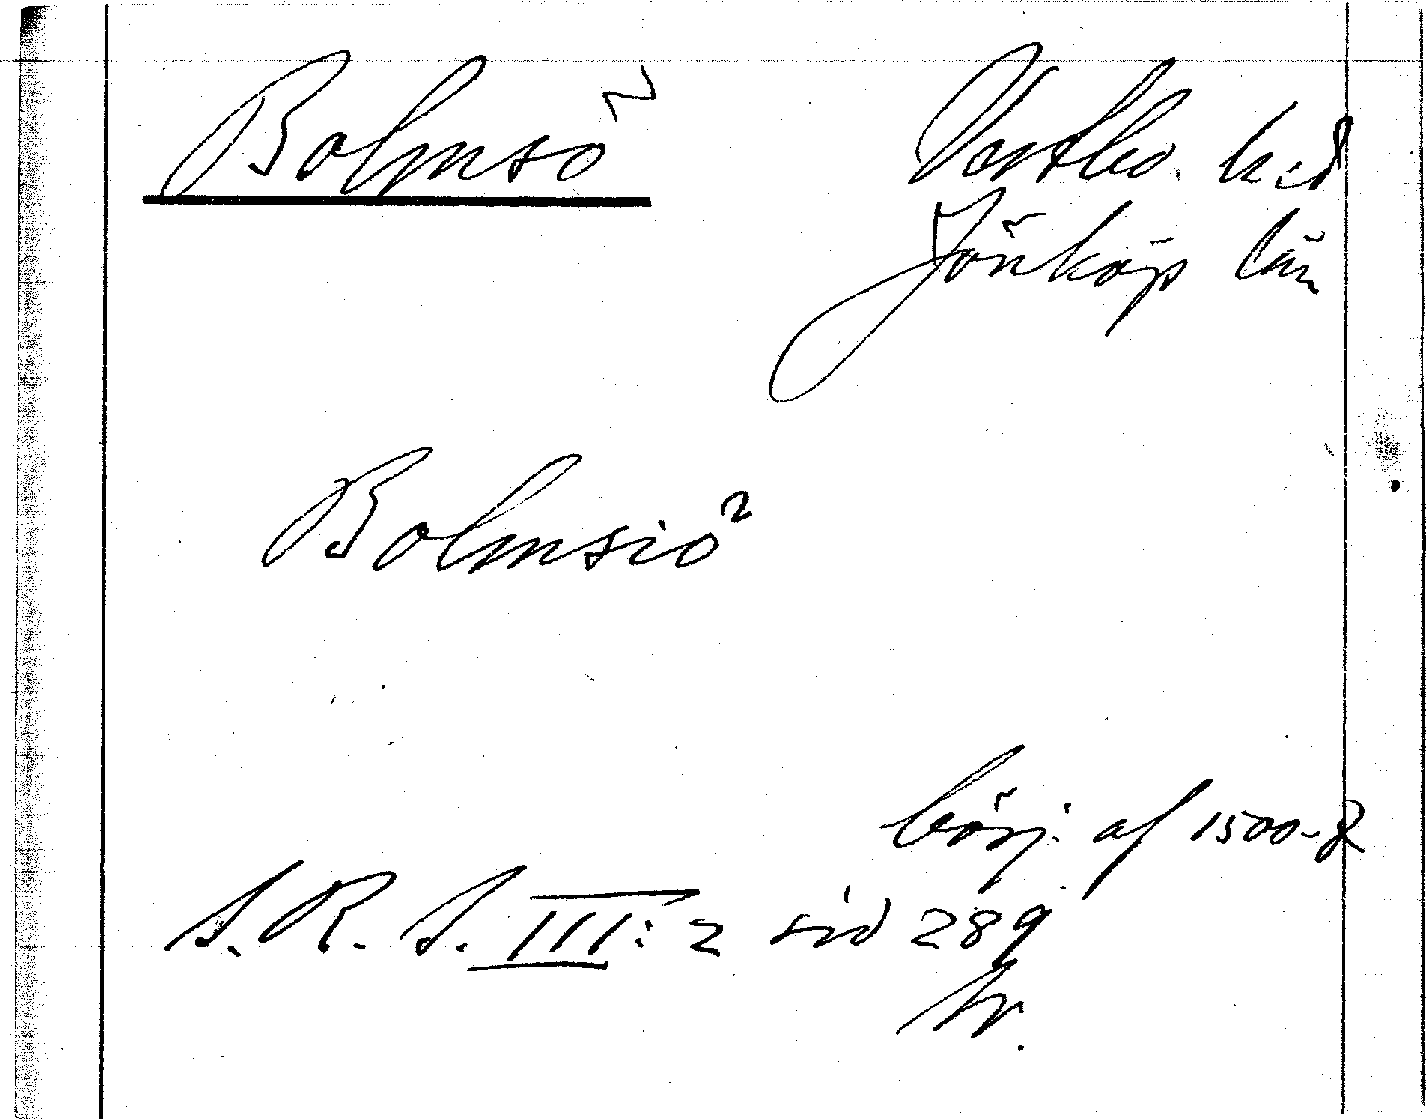 Bolmsö Vestbo hd
Jönköp län
Bolmsiö
börj. af 1500-t
S. R. S. III: 2 sid 289
tr.